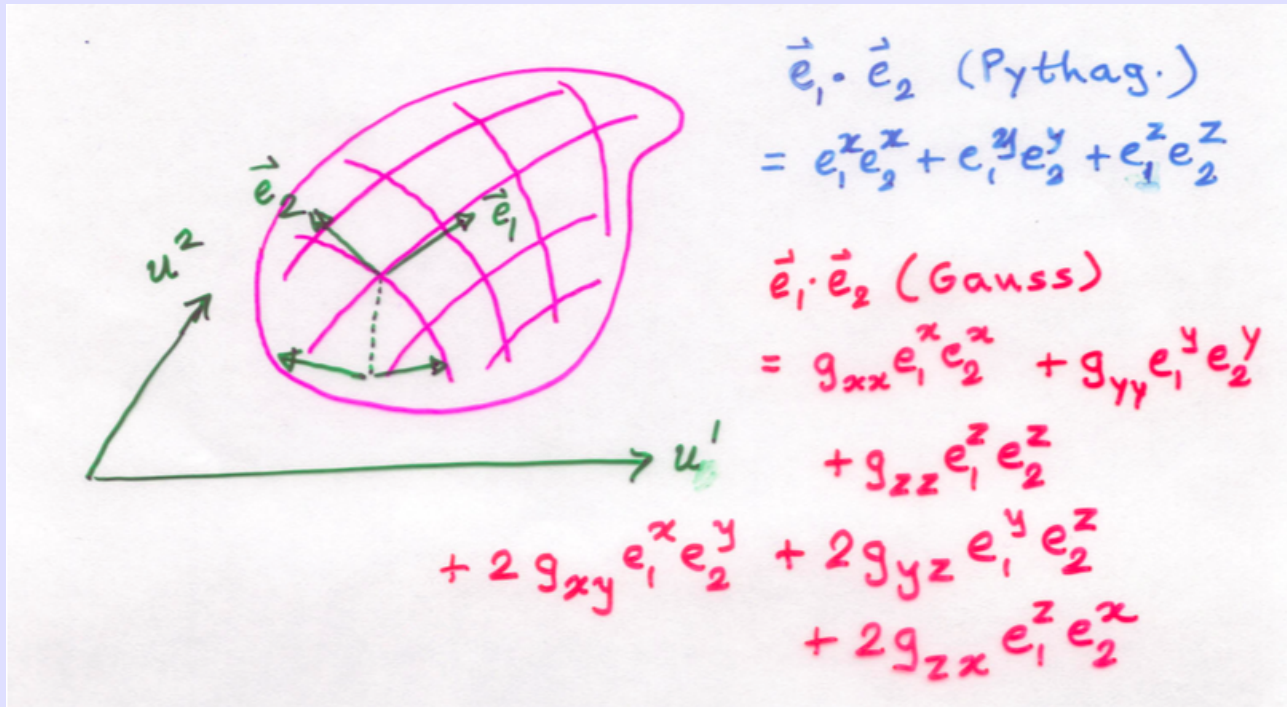 e⃗₁ · e⃗₂ (Pythag.)
= e₁ˣe₂ˣ + e₁ʸe₂ʸ + e₁ᶻe₂ᶻ
e⃗₂
e⃗₁
u²
u¹
e⃗₁ · e⃗₂ (Gauss)
= gₓₓe₁ˣe₂ˣ + g_yy e₁ʸe₂ʸ
+ g_zz e₁ᶻe₂ᶻ
+ 2g_xy e₁ˣe₂ʸ + 2g_yz e₁ʸe₂ᶻ
+ 2g_zx e₁ᶻe₂ˣ